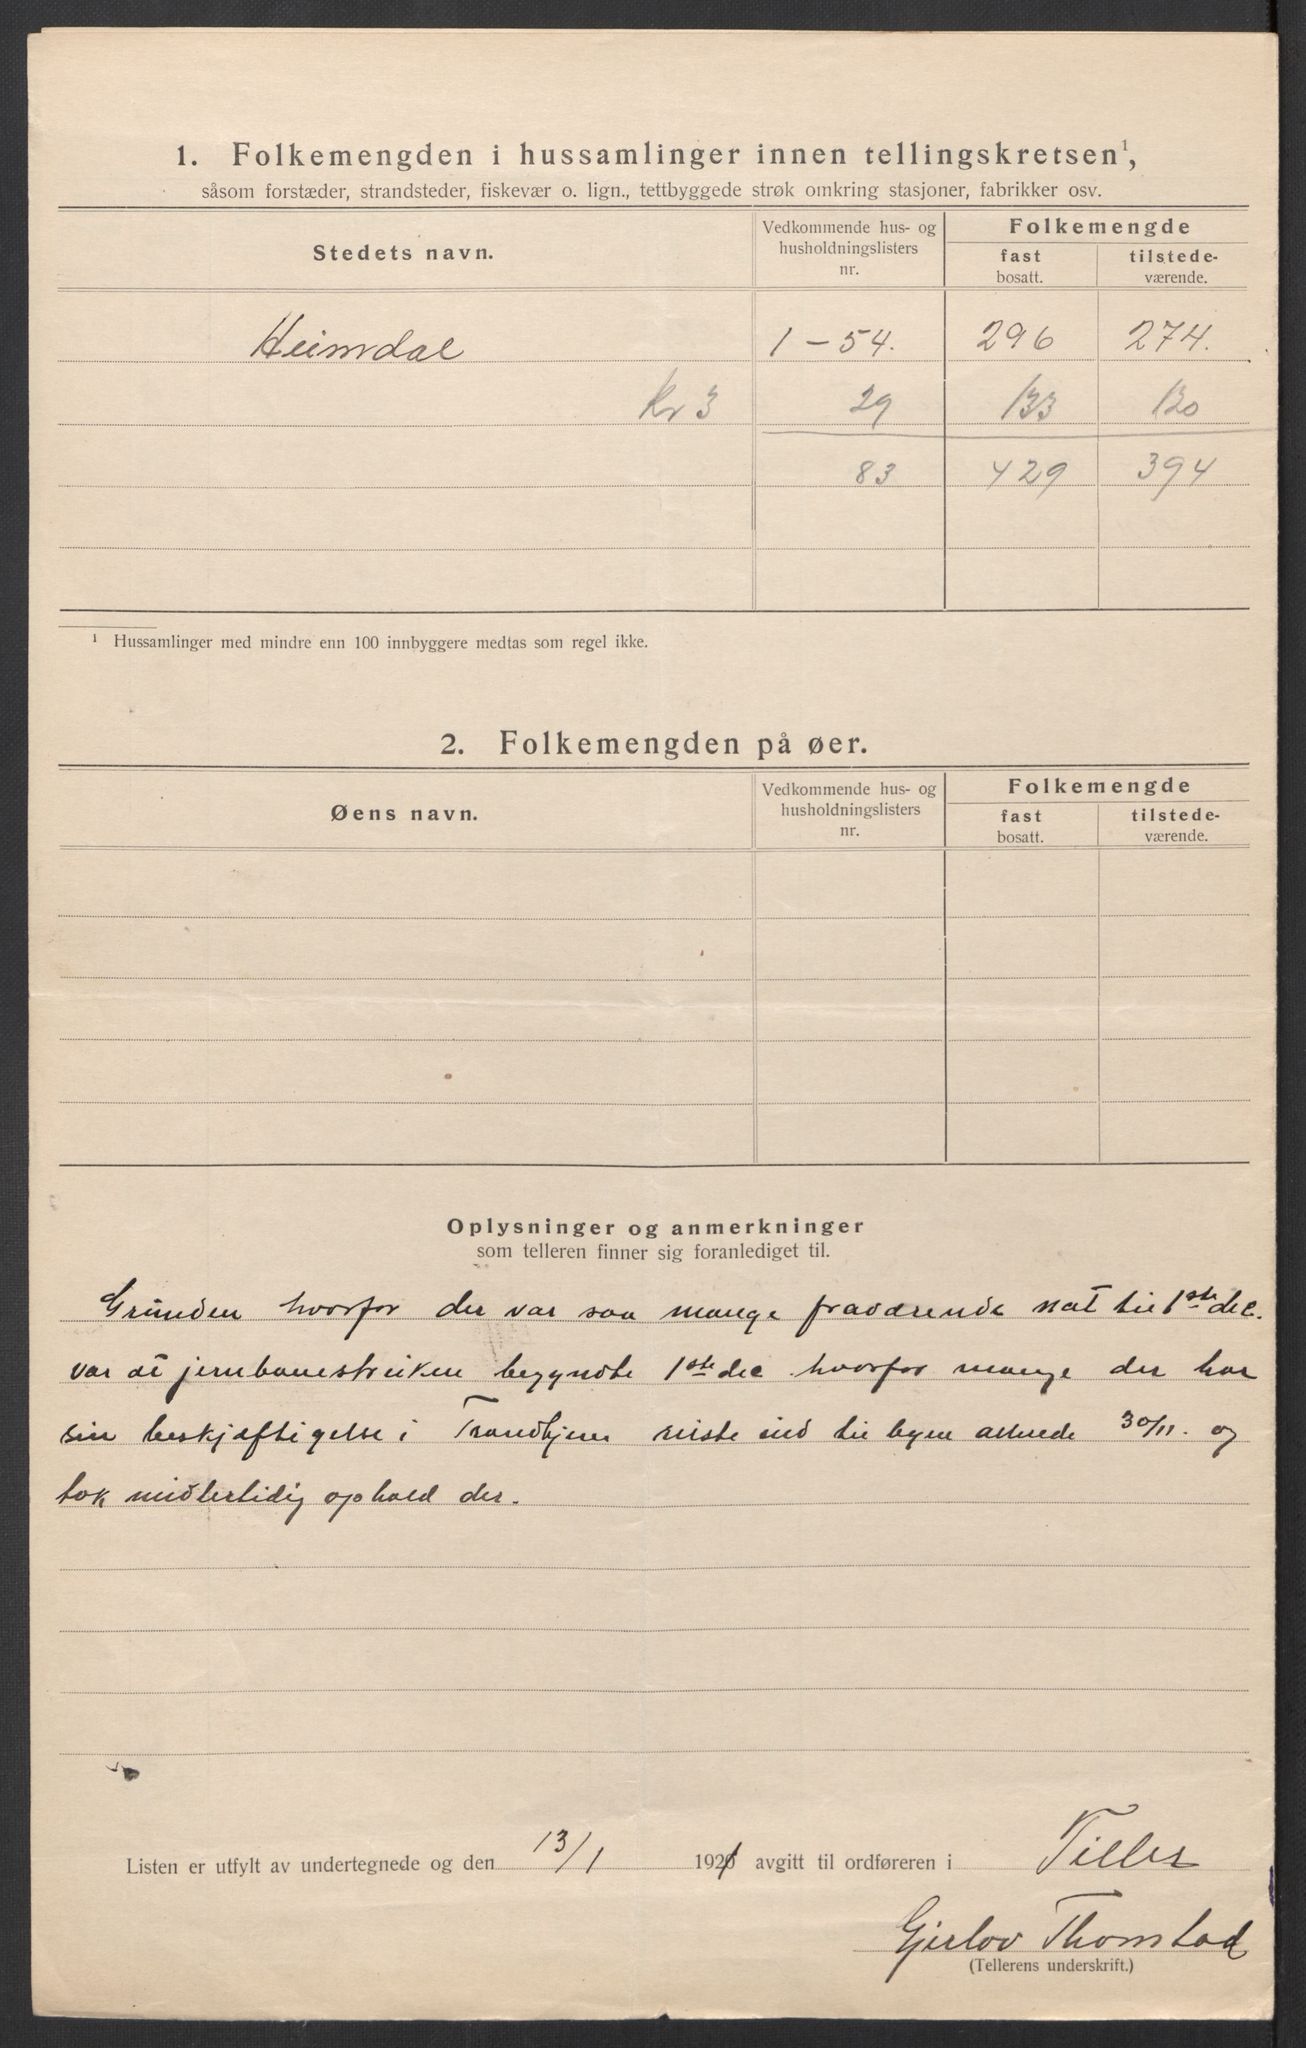 1. Folkemengden i hussamlinger innen tellingskretsen¹,
såsom forstæder, strandsteder, fiskevær o. lign., tettbyggede strøk omkring stasjoner, fabrikker osv.
Stedets navn.
Vedkommende hus- og
husholdningslisters
nr.
Folkemengde
fast
bosatt.
tilstede-
værende.
Heimdal 1-54. 296 274.
Kr 3 29 133 120
83 429 394
¹ Hussamlinger med mindre enn 100 innbyggere medtas som regel ikke.
2. Folkemengden på øer.
Øens navn.
Vedkommende hus- og
husholdningslisters
nr.
Folkemengde
fast
bosatt.
tilstede-
værende.
Oplysninger og anmerkninger
som telleren finner sig foranlediget til.
Grunden hvorfor der var saa mange fraværende nat til 1ste dec.
var at jernbanestreiken begyndte 1ste dec. hvorfor mange der har
sin beskjæftigelse i Trondhjem reiste ind til byen allerede 30/11. og
tok midlertidig ophold der.
Listen er utfylt av undertegnede og den 13/1 1921 avgitt til ordføreren i Tiller
Gjerlov Thomstad
(Tellerens underskrift.)